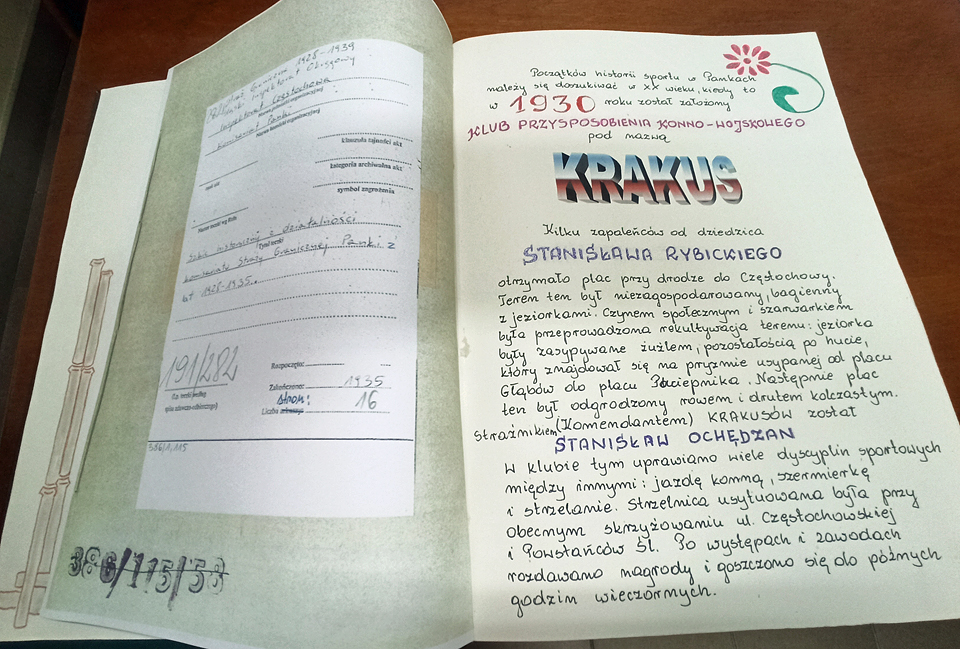 Straż Graniczna 1928-1939
Śląski Inspektorat Okręgowy
Inspektorat Częstochowa
Nazwa jednostki organizacyjnej
Komisariat Panki
Nazwa komórki organizacyjnej
klauzula tajności akt
kategoria archiwalna akt
symbol zagrożenia
Zarys historyczny z działalności
Tytuł teczki
komisariatu Straży Granicznej Panki z
lat 1928-1935.
191/282
Rozpoczęto:
Zakończono: 1935
stron:
Liczba 16
386/1/115
386/115/58
Początków historii sportu w Pankach
należy się doszukiwać w XX wieku, kiedy to
w 1930 roku został założony
KLUB PRZYSPOSOBIENIA KONNO-WOJSKOWEGO
pod nazwą
KRAKUS
Kilku zapaleńców od dziedzica
STANISŁAWA RYBICKIEGO
otrzymało plac przy drodze do Częstochowy.
Teren ten był niezagospodarowany, bagienny
z jeziorkami. Czynem społecznym i szarwarkiem
była przeprowadzona rekultywacja terenu: jeziorka
były zasypywane żużlem, pozostałością po hucie,
który znajdował się na pryzmie usypanej od placu
Głąbów do placu Paciepnika. Następnie plac
ten był odgrodzony rowem i drutem kolczastym.
Strażnikiem (Komendantem) KRAKUSÓW został
STANISŁAW OCHĘDZAN
W klubie tym uprawiano wiele dyscyplin sportowych
między innymi: jazdę konną, szermierkę
i strzelanie. Strzelnica usytuowana była przy
obecnym skrzyżowaniu ul. Częstochowskiej
i Powstańców Śl. Po występach i zawodach
rozdawano nagrody i goszczono się do późnych
godzin wieczornych.